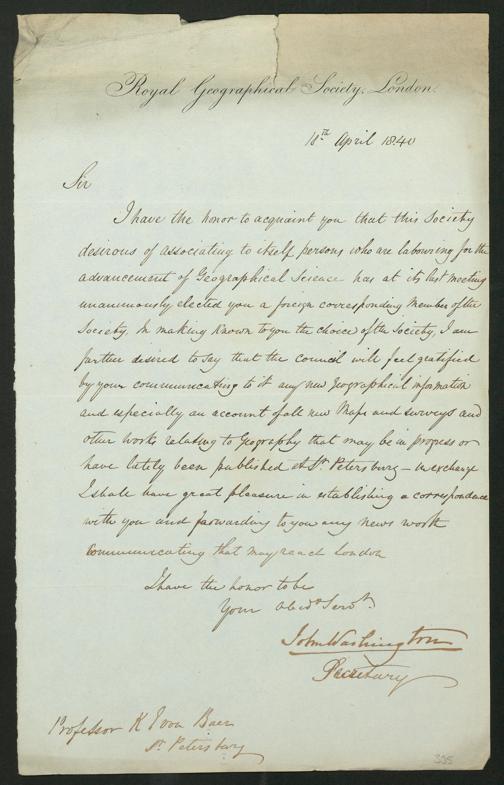 Royal Geographical Society, London.
18th April 1840
Sir
I have the honor to acquaint you that this Society
desirous of associating to itself persons who are labouring for the
advancement of Geographical Science has at its last meeting
unanimously elected you a foreign corresponding Member of the
Society. In making known to you the choice of the Society, I am
further desired to say that the council will feel gratified
by your communicating to it any new Geographical information
and especially an account of all new Maps and surveys and
other works relating to Geography that may be in progress or
have lately been published at St Petersburg – in exchange
I shall have great pleasure in establishing a correspondence
with you and forwarding to you any news worth
communicating that may reach London
I have the honor to be
Your Obedt Servt
John Washington
Secretary
Professor K E von Baer
St Petersburg
335